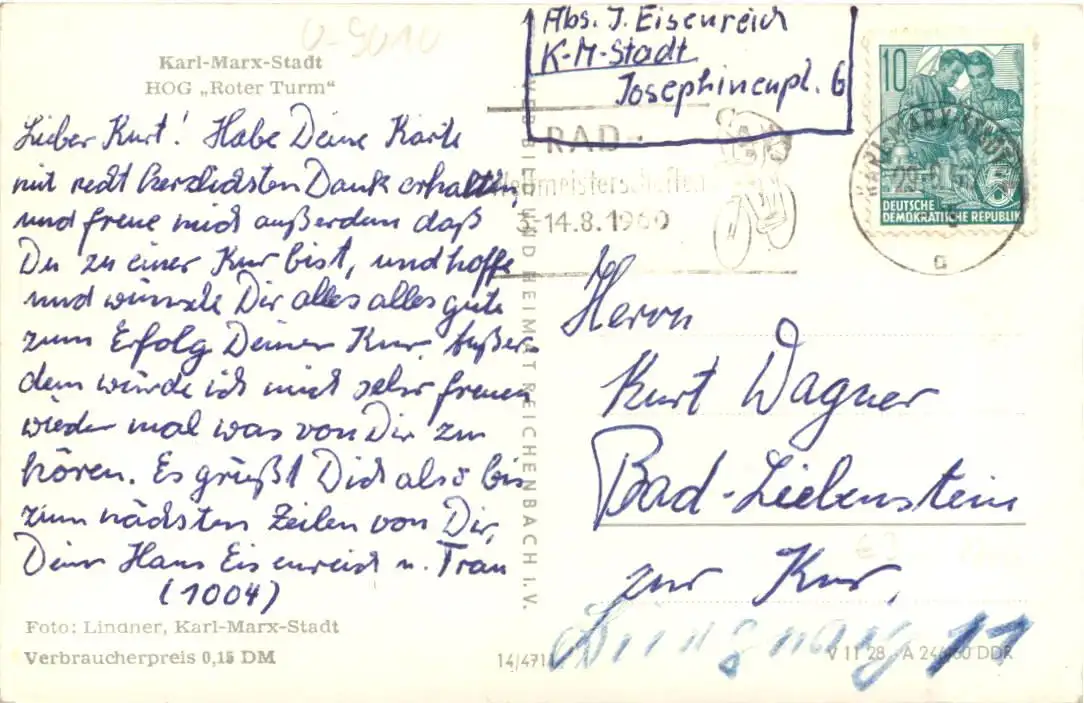 Karl-Marx-Stadt
HOG „Roter Turm“
Lieber Kurt! Habe Deine Karte
mit recht herzlichsten Dank erhalten,
und freue mich außerdem daß
Du zu einer Kur bist, und hoffe
und wünsche Dir alles alles gute
zum Erfolg Deiner Kur. Außer-
dem würde ich mich sehr freuen
wieder mal was von Dir zu
hören. Es grüßt Dich also bis
zum nächsten Zeilen von Dir,
Dein Hans Eisenreich u. Frau
(1004)
Foto: Lindner, Karl-Marx-Stadt
Verbraucherpreis 0,15 DM
VEB BILD UND HEIMAT REICHENBACH I. V.
Abs. J. Eisenreich
K-M-Stadt
Josephinenpl. 6
RAD-
Weltmeisterschaften
3.-14.8.1960
10
DEUTSCHE
DEMOKRATISCHE REPUBLIK
5
KARL-MARX-STADT
Herrn
Kurt Wagner
Bad-Liebenstein
zur Kur,
11
14/471
V 11 28 A 24 60 DDR